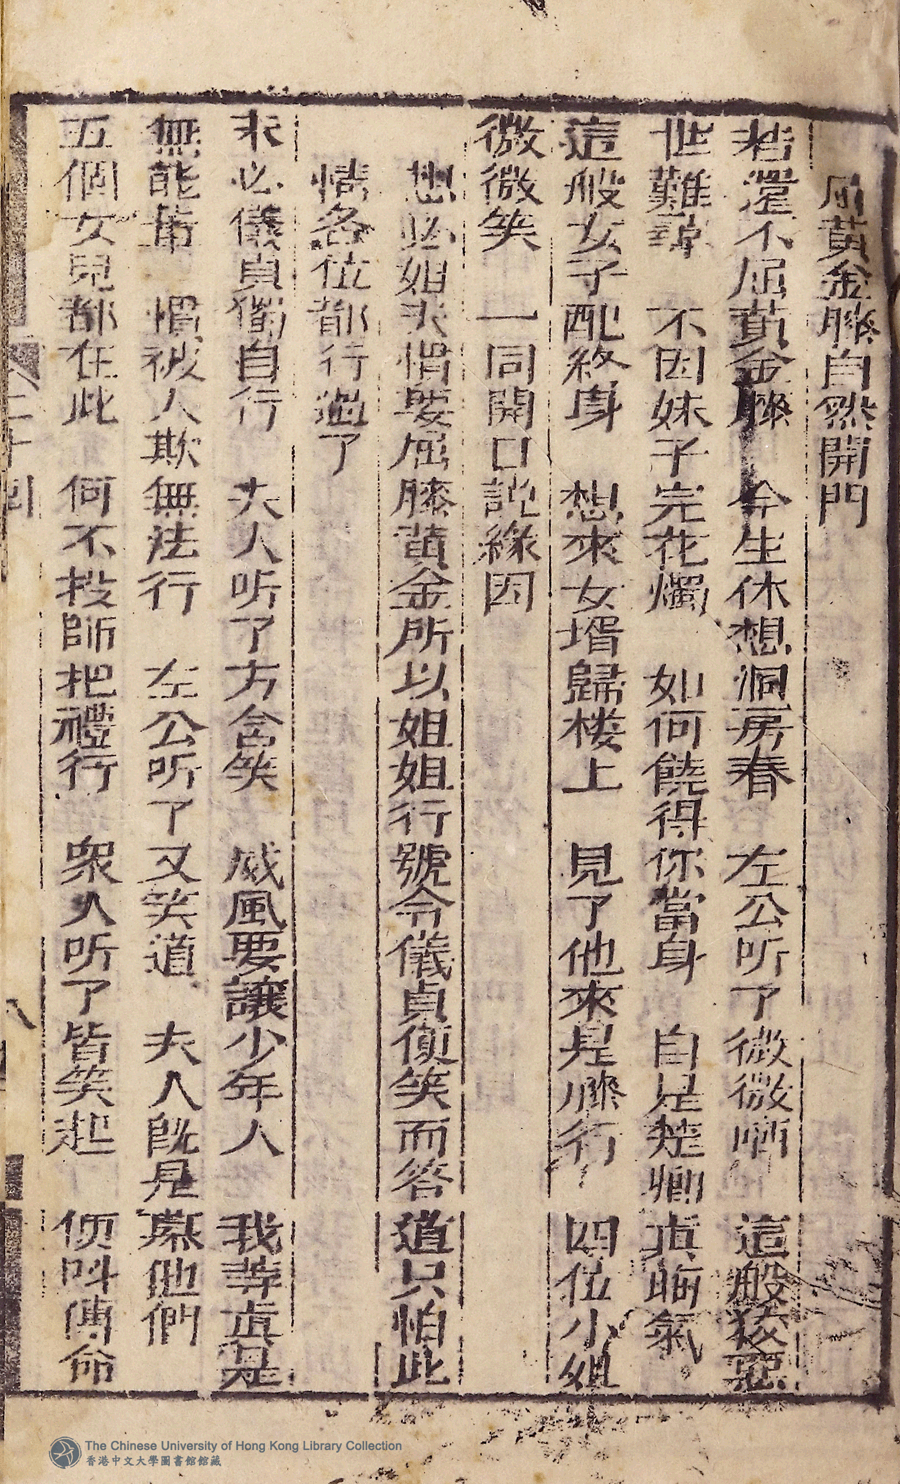 屈黃金膝自然開門
若還不屈黃金膝　今生休想洞房春　左公听了微微哂　這般狻惡
世難尋　不因妹子完花燭　如何饒得你當身　自是楚卿真晦氣
這般女子配終身　想來女壻歸楼上　見了他來是膝行　四位小姐
微微笑　一同開口說緣因
想必姐夫慣要屈膝黃金所以姐姐行號令儀貞便笑而答道只怕此
情各位都行過了
未必儀貞獨自行　夫人听了方含笑　威風要讓少年人　我等真是
無能輩　慣被人欺無法行　左公听了又笑道　夫人既是慕他們
五個女兒都在此　何不投師把禮行　衆人听了皆笑起　便叫傳命
二十回
八
The Chinese University of Hong Kong Library Collection
香港中文大學圖書館館藏